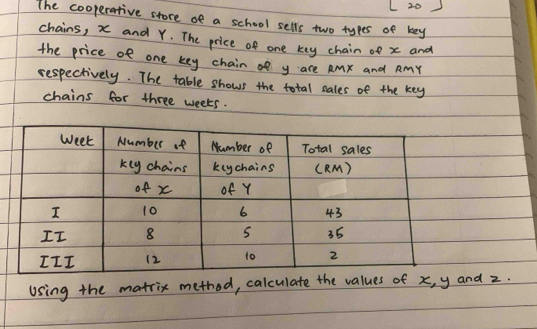 [ 20 ]
The cooperative store of a school sells two types of key
chains, x and Y. The price of one key chain of x and
the price of one key chain of y are RMX and RMY
respectively. The table shows the total sales of the key
chains for three weeks.
Week Number of key chains of x Number of keychains of Y Total sales (RM)
I 10 6 43
II 8 5 35
III 12 10 2
Using the matrix method, calculate the values of x, y and z.